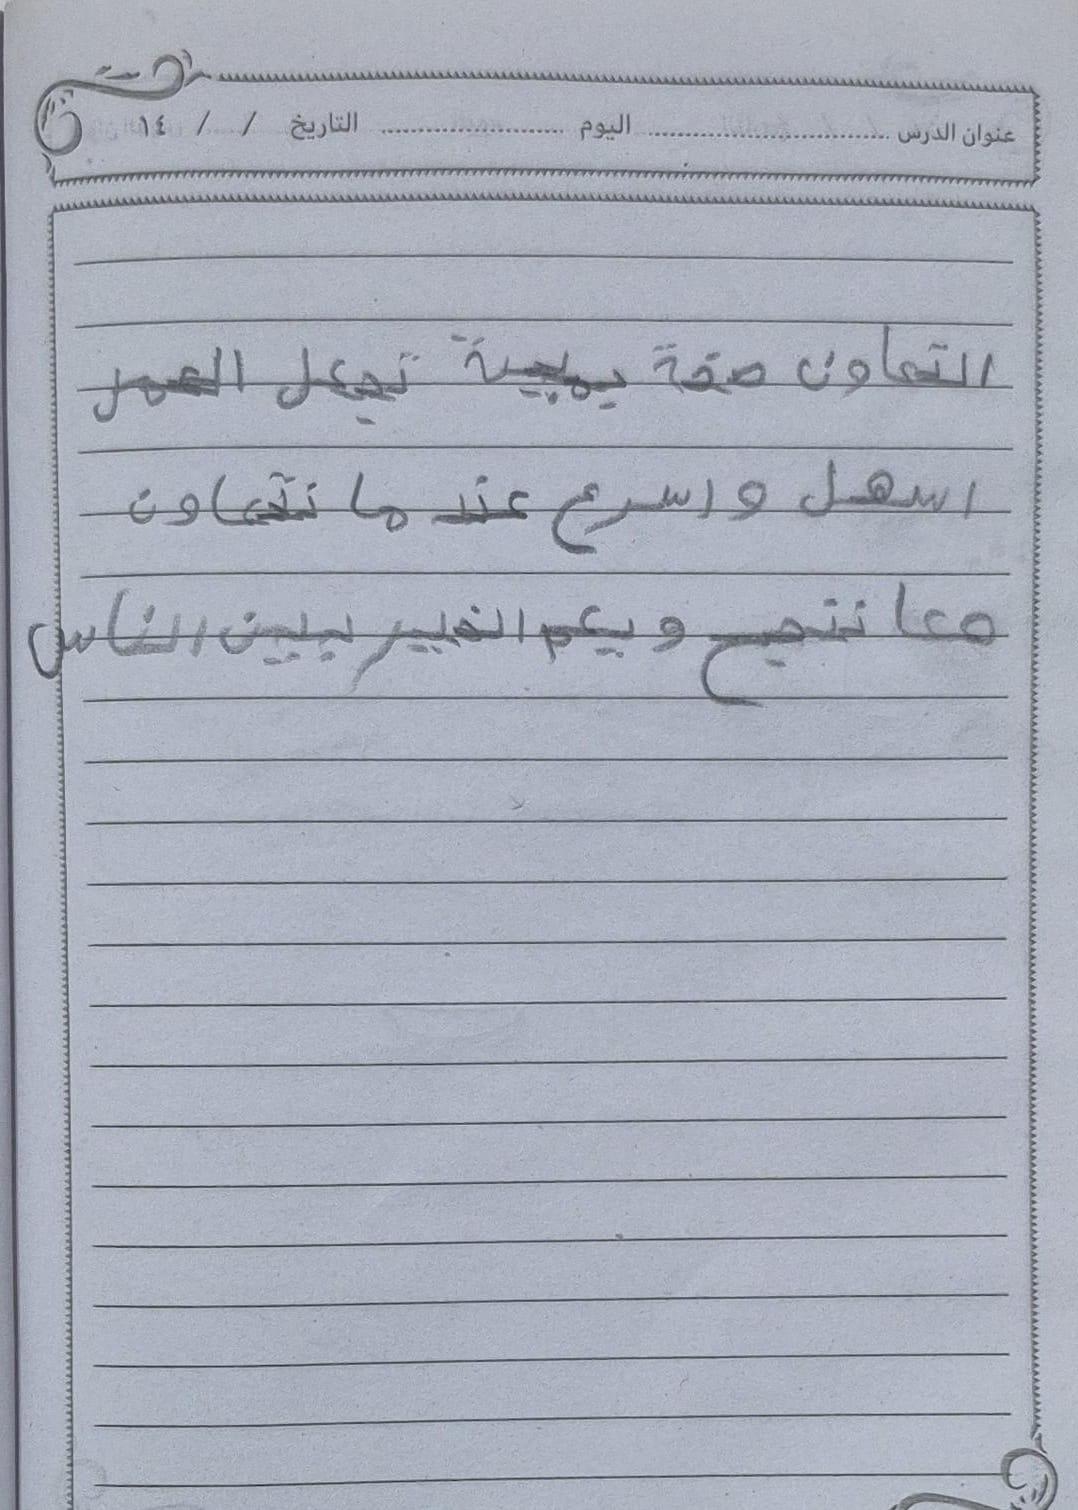 عنوان الدرس ........................ اليوم ........................ التاريخ / / ١٤
التعاون صفة تجعل العمل
اسهل واسرع عند ما نتعاون
معا ننجح ويعم الخير بين الناس